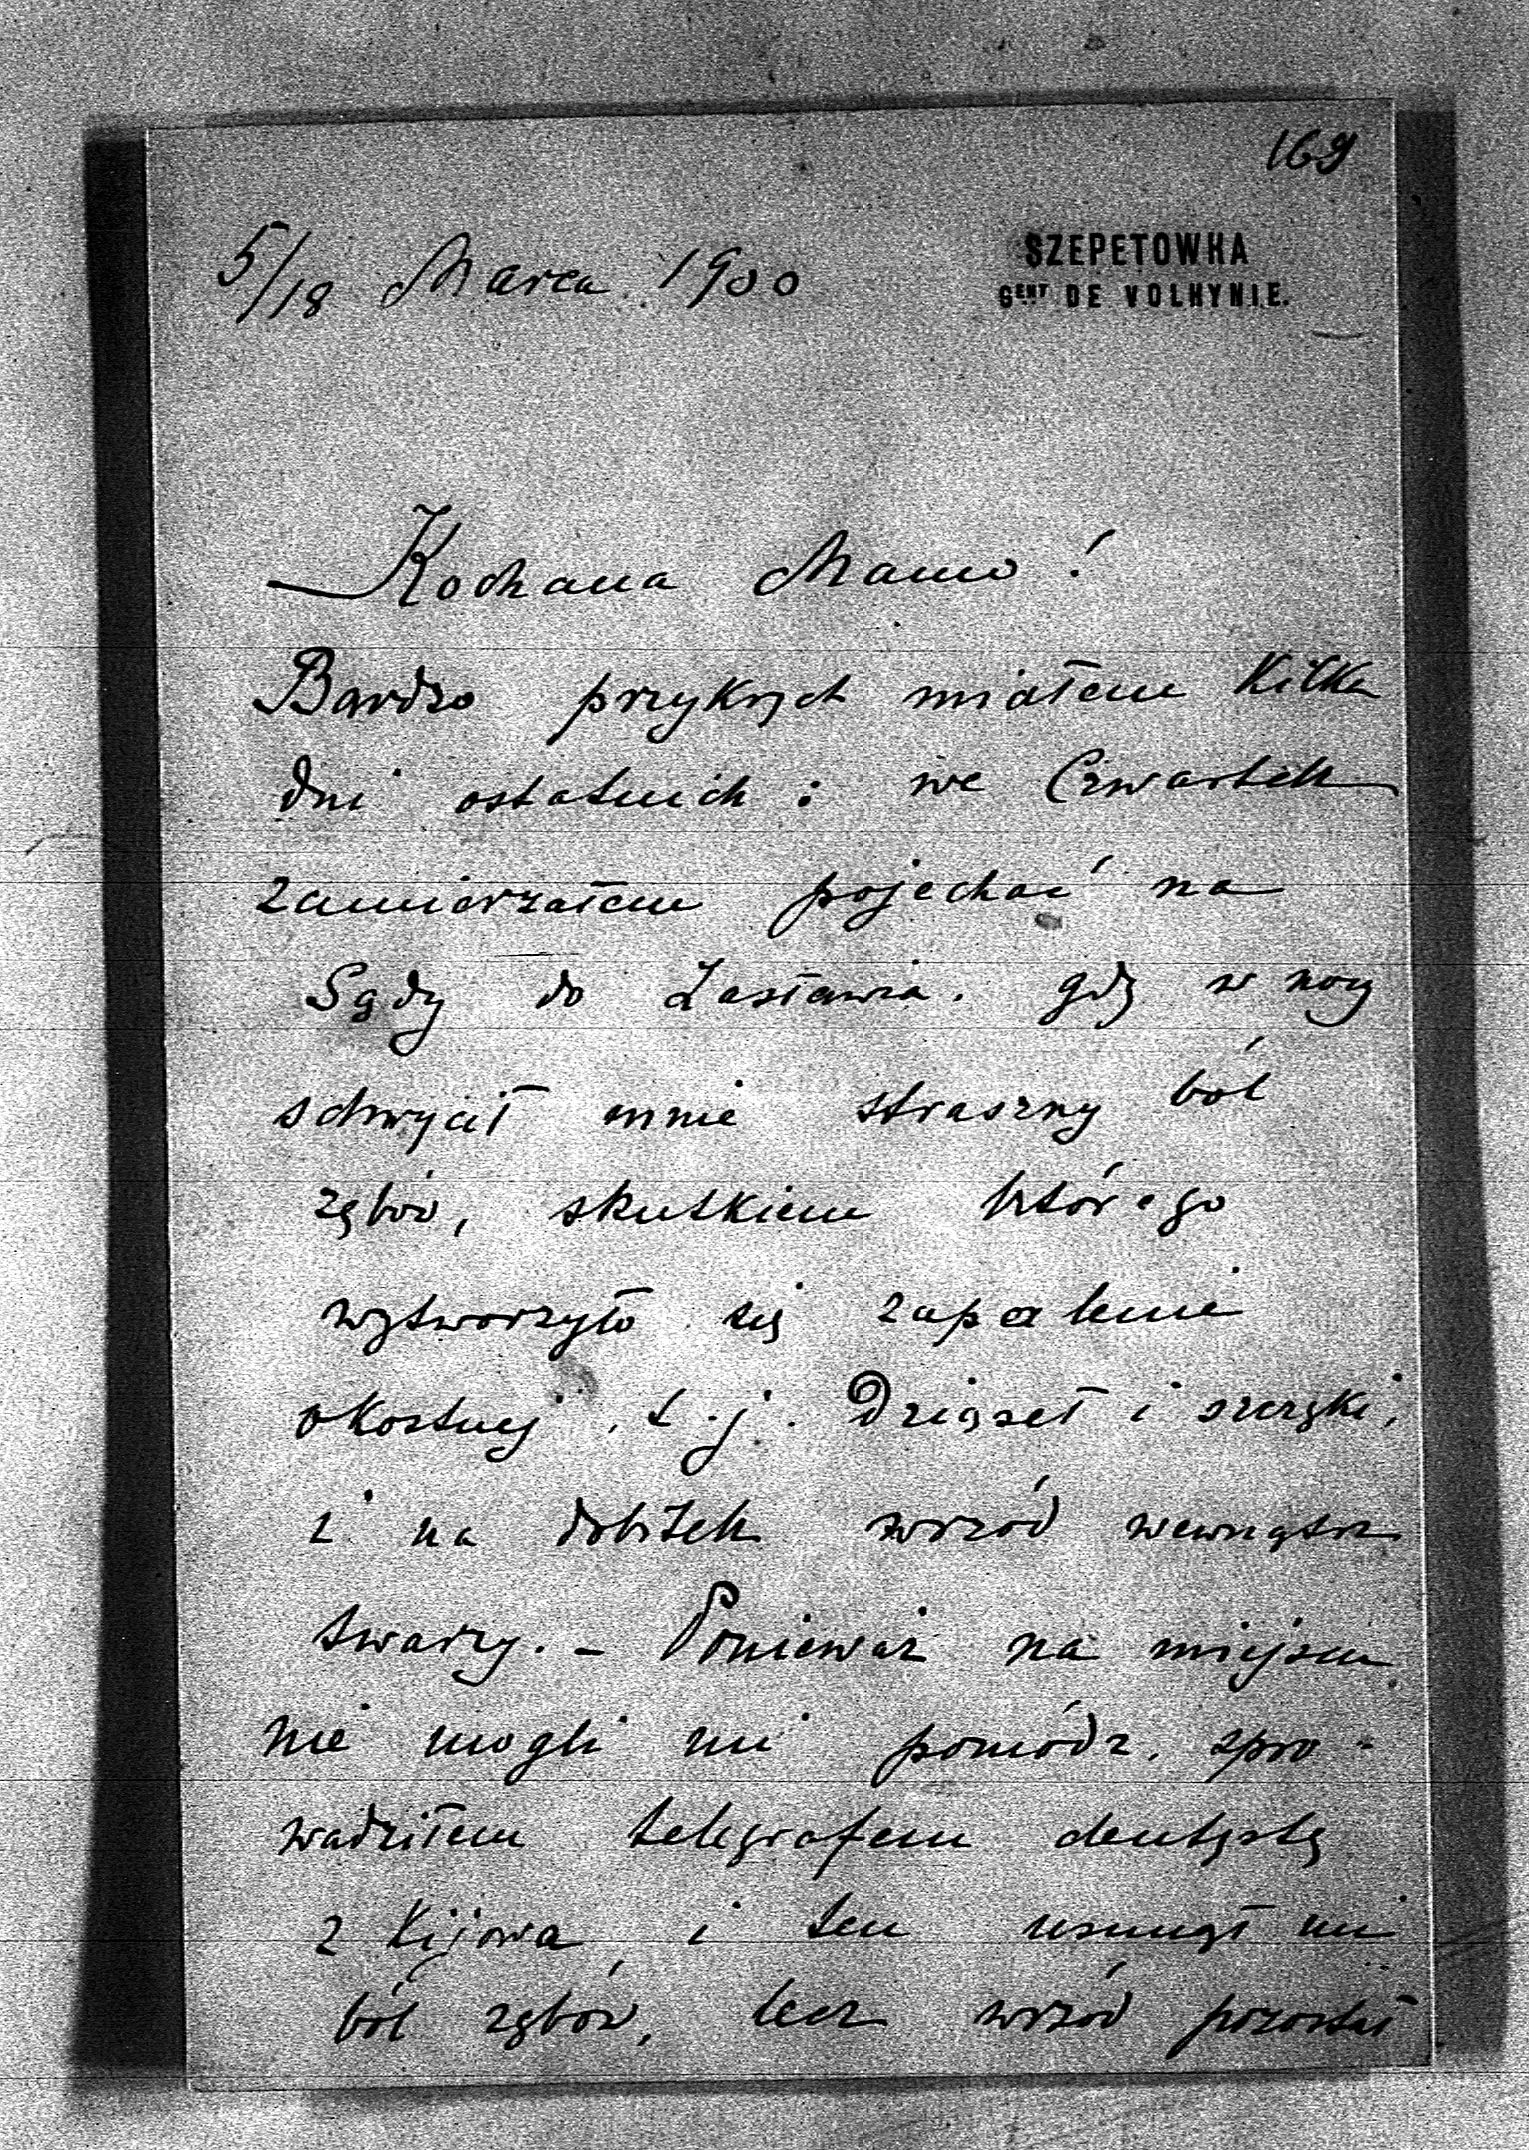 169
5/18 Marca 1900
SZEPETOWKA
GENT DE VOLHYNIE.
Kochana Mamo!
Bardzo przykrych miałem kilka
dni ostatnich: we Czwartek
zamierzałem pojechać na
Sądy do Zasławia. gdy w nocy
schwycił mnie straszny ból
zębów, skutkiem którego
wytworzyło się zapalenie
okostnej, t.j. Dziąseł i szczęki,
i na dobitek wrzód wewnątrz
twarzy. – Ponieważ na miejscu
nie mogli mi pomódz, spro-
wadziłem telegrafem dentystę
z Kijowa i ten usunął mi
ból zębów, lecz wrzód pozostał